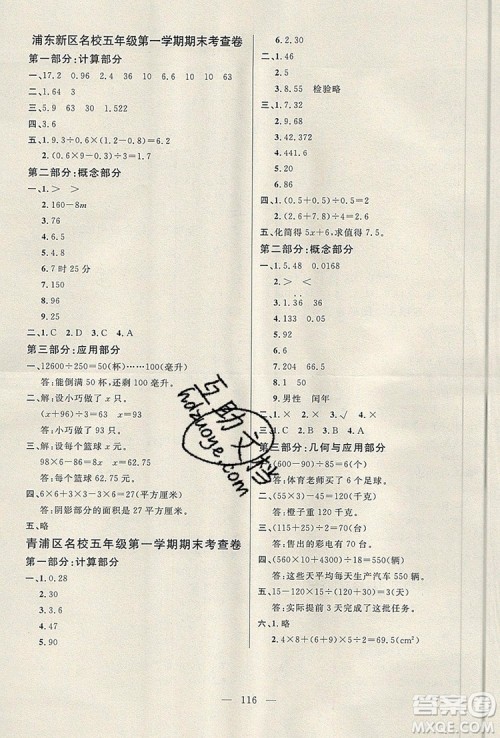 浦东新区名校五年级第一学期期末考查卷
第一部分:计算部分
一、17.2 0.96 2.4 36 0.3 0.2
二、1.64 3
三、5.9 63 30 1.522
四、3.6
五、1.9.3÷(0.6+0.9)=6.2
2.(0.6×9-0.9)÷3=1.5
第二部分:概念部分
一、1.> >
2.160-8m
3.76
4.6.5
5.4.8
6.7时25分
7.0
8.60
二、1.C 2.D 3.C 4.A
第三部分:应用部分
一、12600÷250=50(杯)……100(毫升)
答:能倒满50杯,还剩100毫升。
二、解:设小巧做了x只。
(x+96)÷3=62 x=90
答:小巧做了90只。
三、解:设每个篮球x元。
98×6-8x=86 x=62.75
答:每个篮球62.75元。
四、6×6+3×3-6×6÷2=27(平方厘米)
答:阴影部分的面积是27(平方厘米)。
五、略
青浦区名校五年级第一学期期末考查卷
第一部分:计算部分
一、1.0.28
2.30
3.0
4.0
5.90
6.2.30
一、1.2
2.0.5
3.8.55 检验略
三、1.25
2.9.68
3.42.42
4.441.6
5.0
6.86
四、1.(0.5+0.5)÷0.5=2
2.(0.6+7.5)÷9=0.9
五、化简得5x+6,求值得7.5。
第二部分:概念部分
一、1.5.45 0.0168
2.
3.1.0. >
4.9
5.
6.
7.204 66
8.1
9.男性 闰年
二、1.× 2.× 3.√ 4.×
三、1.C 2.A 3.C
第三部分:几何与应用部分
答:体育老师买了6个足球。
答:橙子重150克。
三、(560×10+4300)÷18=550(辆)
答:这些天平均每天生产汽车550辆。
答:实际提前3天完成了这批任务。
六、1.略
2.4×8+(6+9)×5÷2=69.5(cm²)
116
互助文档
hdzuoye.com
作业帮
答案圈
MXQE.COM